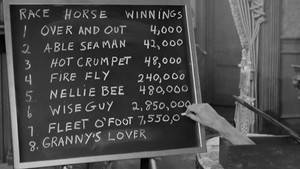 RACE HORSE WINNINGS
1 OVER AND OUT 4,000
2 ABLE SEAMAN 42,000
3 HOT CRUMPET 48,000
4 FIRE FLY 240,000
5 NELLIE BEE 480,000
6 WISE GUY 2,850,000
7 FLEET O'FOOT 7,550,0
8. GRANNY'S LOVER